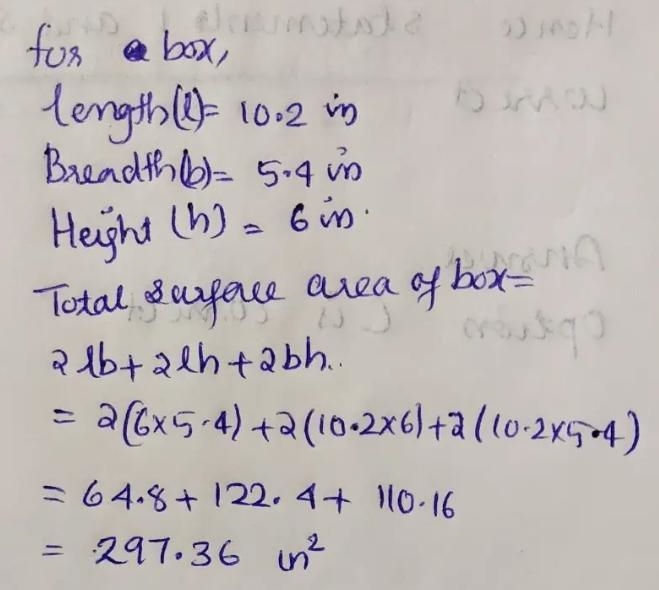 for a box,
length(l)= 10.2 in
Breadth(b)= 5.4 in
Height (h) = 6 in.
Total surface area of box=
2lb+2lh+2bh..
= 2(6x5.4)+2(10.2x6)+2(10.2x5.4)
= 64.8+122.4+ 110.16
= 297.36 in²